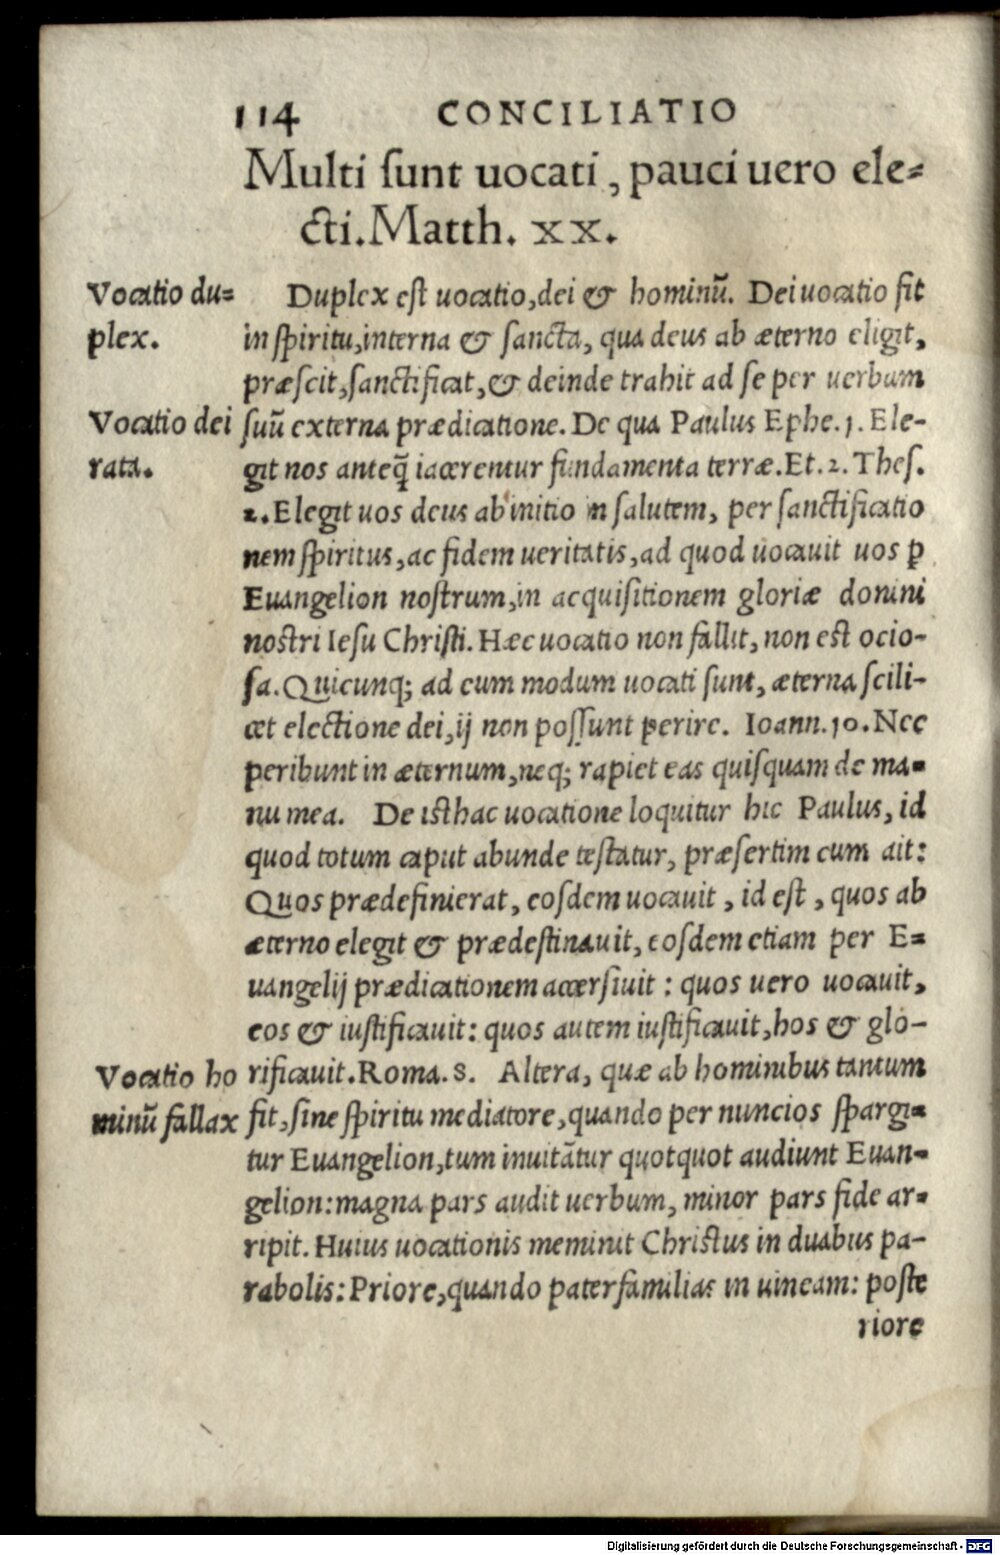 114 CONCILIATIO
Multi sunt uocati, pauci uero ele=
cti. Matth. xx.
Vocatio du=
plex.
Duplex est uocatio, dei & hominũ. Dei uocatio fit
in spiritu, interna & sancta, qua deus ab æterno eligit,
præscit, sanctificat, & deinde trahit ad se per uerbum
Vocatio dei
rata.
suũ externa prædicatione. De qua Paulus Ephe. 1. Ele-
git nos anteq̃ iacerentur fundamenta terræ. Et. 2. Thes.
2. Elegit uos deus ab initio in salutem, per sanctificatio
nem spiritus, ac fidem ueritatis, ad quod uocauit uos ꝑ
Euangelion nostrum, in acquisitionem gloriæ domini
nostri Iesu Christi. Hæc uocatio non fallit, non est ocio-
sa. Quicunq; ad eum modum uocati sunt, æterna scili-
cet electione dei, ij non possunt perire. Ioann. 10. Nec
peribunt in æternum, neq; rapiet eas quisquam de ma-
nu mea. De isthac uocatione loquitur hic Paulus, id
quod totum caput abunde testatur, præsertim cum ait:
Quos prædefinierat, eosdem uocauit, id est, quos ab
æterno elegit & prædestinauit, eosdem etiam per E=
uangelij prædicationem accersiuit: quos uero uocauit,
eos & iustificauit: quos autem iustificauit, hos & glo-
Vocatio ho
minũ fallax
rificauit. Roma. 8. Altera, quæ ab hominibus tantum
fit, sine spiritu mediatore, quando per nuncios spargi=
tur Euangelion, tum inuitãtur quotquot audiunt Euan-
gelion: magna pars audit uerbum, minor pars fide ar-
ripit. Huius uocationis meminit Christus in duabus pa-
rabolis: Priore, quando paterfamilias in uineam: poste
riore
Digitalisierung gefördert durch die Deutsche Forschungsgemeinschaft - DFG